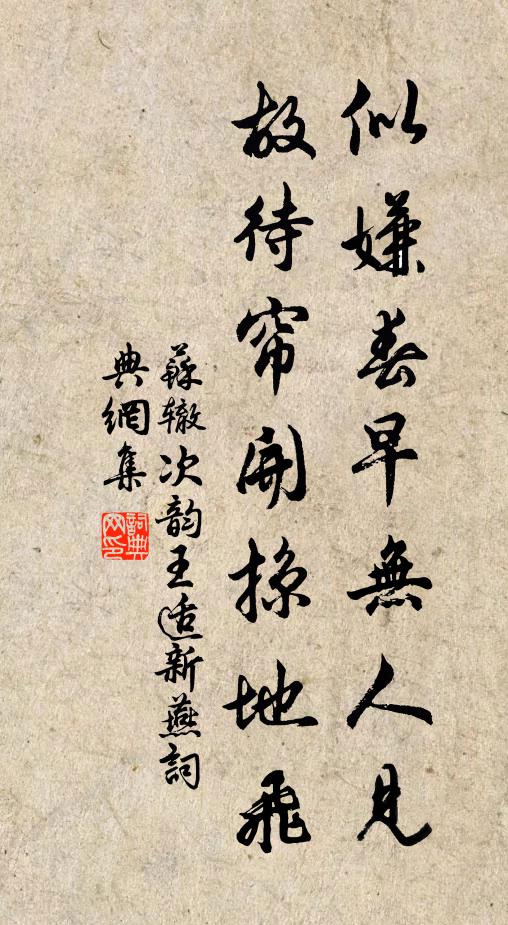 似嫌春早無人見
故待帘開掠地飛
蘇辙次韵王适新燕詞
典網集
詞典网印